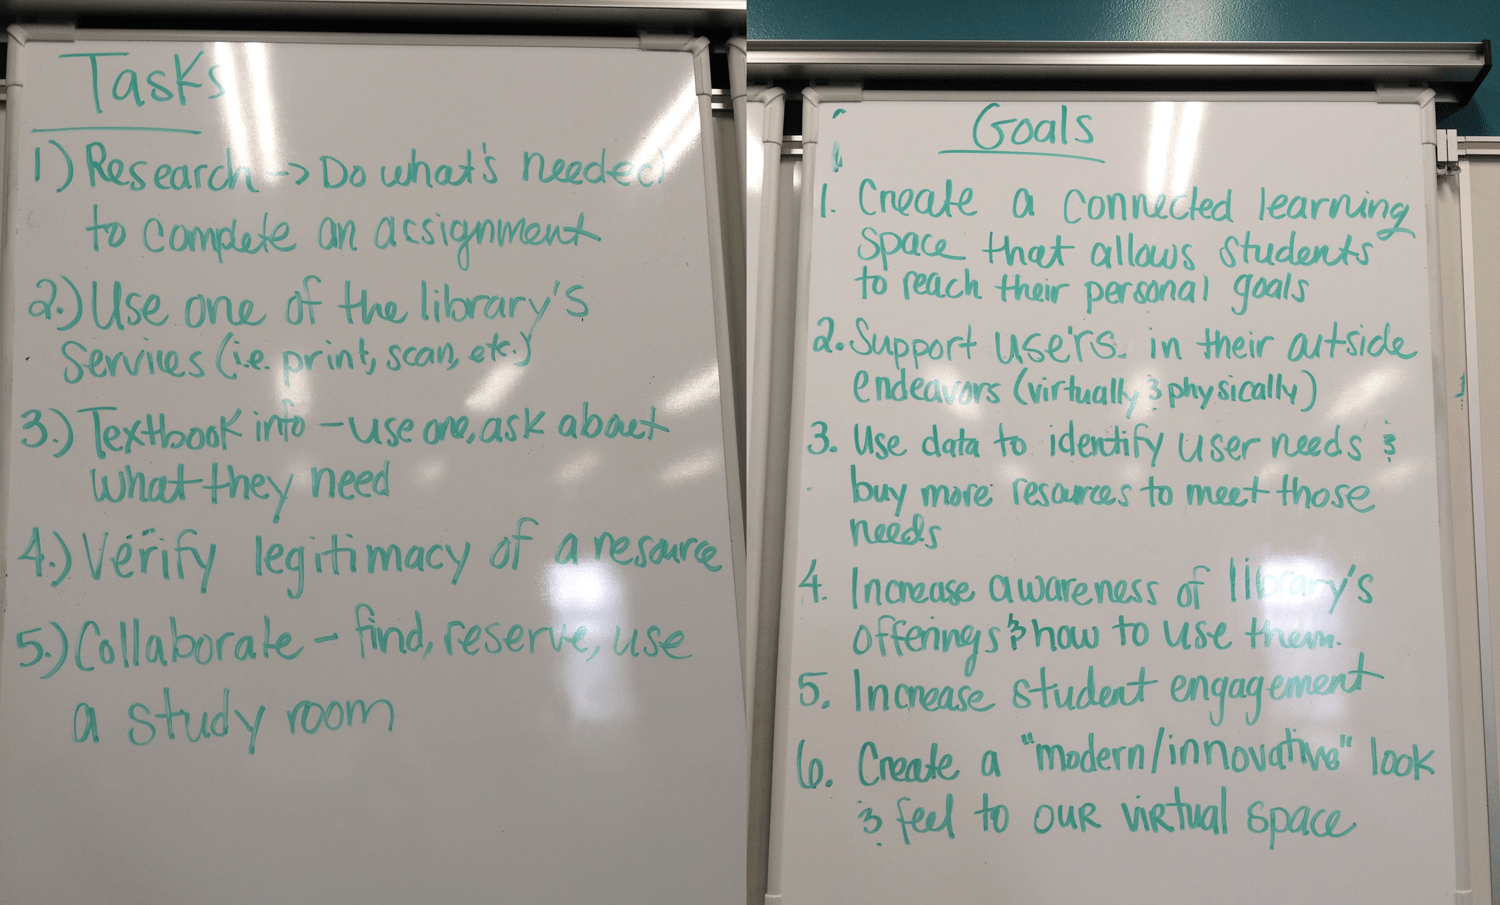 Tasks
1) Research -> Do what's needed
to complete an assignment
2.) Use one of the library's
Services (i.e. print, scan, etc.)
3.) Textbook info - use one, ask about
what they need
4.) Verify legitimacy of a resource
5.) Collaborate - find, reserve, use
a study room
Goals
1. Create a connected learning
space that allows students
to reach their personal goals
2. Support users. in their outside
endeavors (virtually & physically)
3. Use data to identify user needs &
buy more resources to meet those
needs
4. Increase awareness of library's
offerings & how to use them.
5. Increase student engagement
6. Create a "modern/innovative" look
& feel to our virtual space